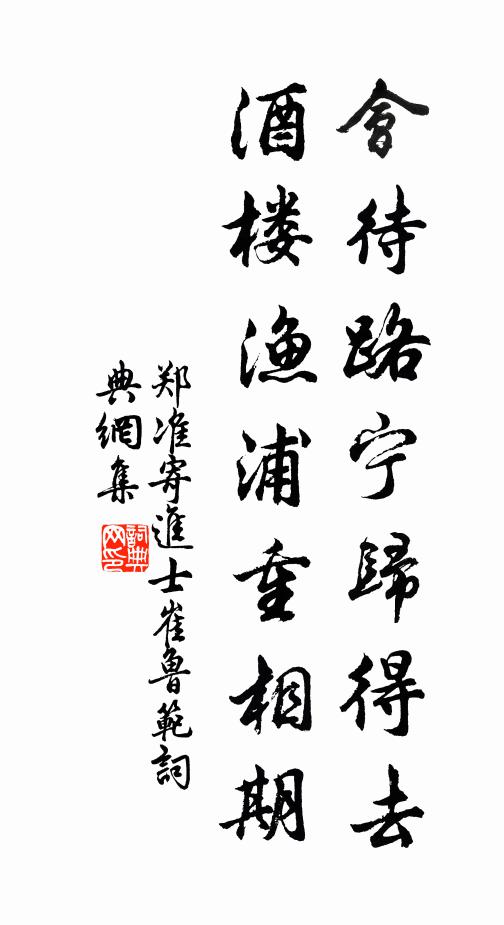 會待路宁歸得去
酒楼漁浦重相期
郑准寄進士崔魯範詞
典網集
詞典
网印